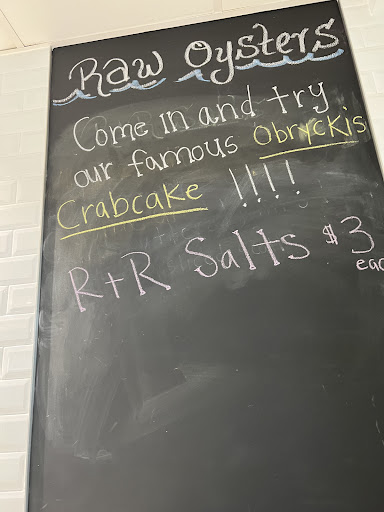 Raw Oysters
Come in and try
our famous Obryckis
Crabcake !!!!
R+R Salts $3
eac